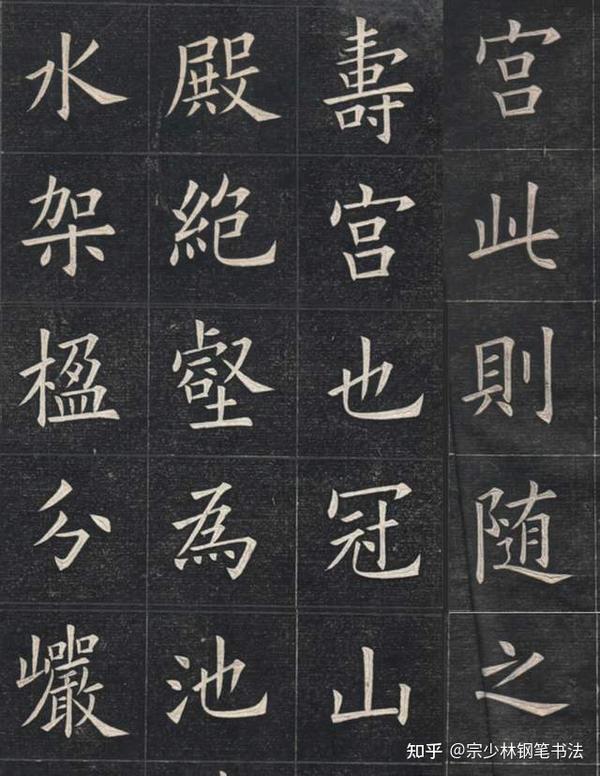 宫此則随之
壽宫也冠山
殿絶壑為池
水架楹分巖
知乎 @宗少林钢笔书法